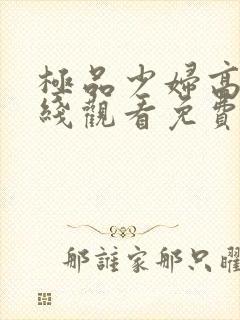 極品少婦高
綫觀看免費
那誰家那只曜